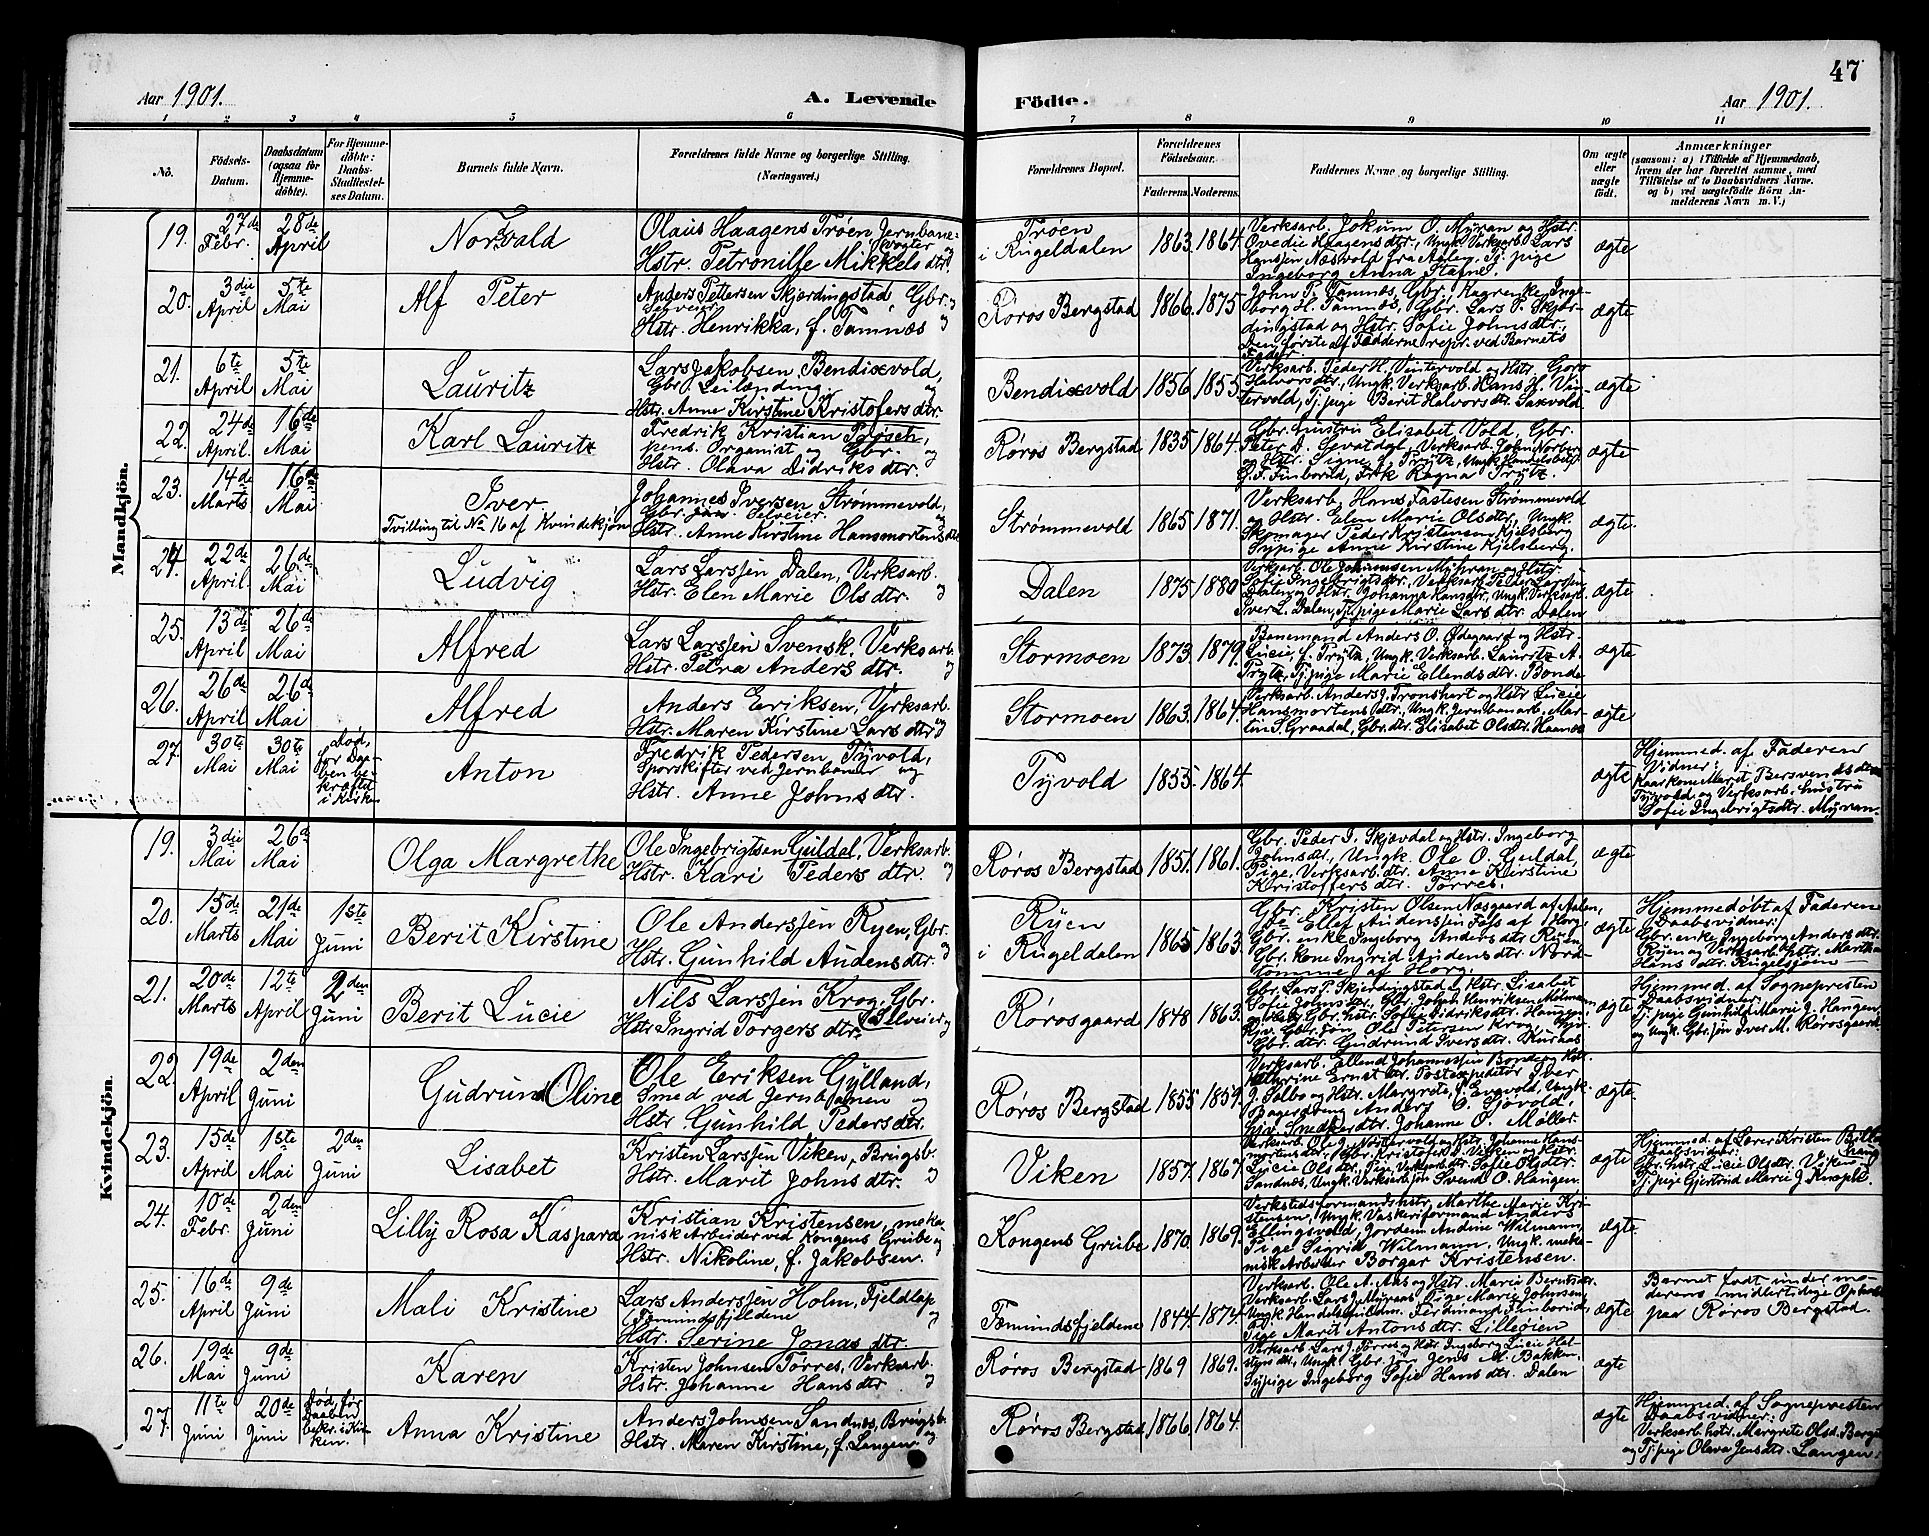 47
Aar 1901.
A. Levende Födte.
Aar 1901.
1 2 3 4 5 6 7 8 9 10 11
No.
Födsels-Datum.
Daabsdatum (ogsaa for Hjemme-döbte).
For Hjemme-döbte: Daabs-Stadfæstel-ses Datum.
Barnets fulde Navn.
Forældrenes fulde Navne og borgerlige Stilling.
(Næringsvei.)
Forældrenes Bopæl.
Forældrenes Födselsaar.
Faderens. Moderens.
Faddernes Navne og borgerlige Stilling.
Om ægte eller uægte födt.
Anmærkninger
(saasom: a) i Tilfælde af Hjemmedaab,
hvem der har forrettet samme, med
Tilföielse af to Daabsvidners Navne,
og b) ved uægtefödte Börn An-
melderens Navn m. V.)
Mandkjön.
19. 27de Febr. 28de April
Norvald
Olaus Haagens Trøen Jernbane-
vogter og
Hstr. Petronille Mikkelsdtr.
Trøen
i Rugeldalen
1863. 1864.
Verksarb. Jokum O. Myran og Hstr.
Ovedie Haagensdtr., Ungk. Verksarb. Lars
Hansen Næsvold fra Aalen, Tj. pige
Ingeborg Anna Stafne
ægte
20. 3die April 5te Mai
Alf Peter
Anders Pettersen Skjærdingstad, Gbr.
Selveier og
Hstr. Henrikka, f. Tamnæs
Røros Bergstad
1866. 1875.
John P. Tamnæs, Gbr. Kagrenke, Inge-
borg H. Tamnæs, Gbr. Lars P. Skjær-
dingstad og Hstr. Sofie Johnsdtr.,
Den første af Fadderne repr. ved Barnets
Fader.
ægte
21. 6te April 5te Mai
Lauritz
Lars Jakobsen Bendixvold,
Gbr. Leilænding. og
Hstr. Anne Kirstine Kristofersdtr.
Bendixvold
1856. 1855.
Verksarb. Peder H. Vintervold og Hstr. Goro
Halvorsdtr., Ungk. Verksarb. Hans H. Vin-
tervold, Tj. pige Berit Halvorsdtr. Saxvold
ægte
22. 24de April. 16de Mai
Karl Lauritz
Fredrik Kristian Paysch,
pens. Organist og Gbr. og
Hstr. Olava Didriksdtr.
Røros Bergstad
1835. 1864.
Gbr. hustru Elisabet Vold, Gbr.
Peter D. Sevatdal, Verksarb. John Norberg
og Hstr. Signe f. Trytz, Ungk. Handelsbetj.
G. F. Finborud, Frk Ragna Trytz
ægte
23. 14de Marts 16de Mai
Iver.
Tvilling til No. 16 af Kvindekjøn
Johannes Iversen Strømmevold,
Gbr. Selveier. og
Hstr. Anne Kirstine Hansmortensdtr.
Strømmevold
1865. 1871.
Verksarb. Hans Fastesen Strømmevold
og Hstr. Elen Marie Olsdtr., Ungk.
Skomager Peder Kristensen Kjelsberg
Sypige Anne Kirstine Kjelsberg.
ægte.
24. 22de April 26de Mai
Ludvig
Lars Larssen Dalen, Verksarb.
Hstr. Elen Marie Olsdtr. og
Dalen
1875. 1880.
Verksarb. Ole Johannsen Myhran og Hstr.
Sofie Ingebrigtsdtr., Verksarb. Peder Larssen
Dalen og Hstr. Johanna Hansdtr. Ungk. Verksarb
Iver L. Dalen, Tj. pige Marie Larsdtr. Dalen
ægte
25. 13de April 26de Mai
Alfred
Lars Larssen Svensk, Verksarb.
Hstr. Petra Andersdtr. og
Stormoen
1873. 1879.
Banemand Anders O. Ødegaard og Hstr.
Lucie, f. Prytz, Ungk. Verksarb. Lauritz A.
Prytz, Tj. pige Marie Ellendsdtr. Bonde
ægte
26. 26de April 26de Mai
Alfred
Anders Eriksen, Verksarb.
Hstr. Maren Kirstine Larsdtr. og
Stormoen
1863. 1864.
Verksarb. Anders J. Tronshart og Hstr Lucie
Hansmortensdtr., Ungk. Jernbanearb. Mar-
tin S. Graadal, Gbr. dtr. Elisabet Olsdtr. Haanæs
ægte
27. 30te Mai 30te Mai
Død, før Daa-
ben be-
kræftet
i Kirken
Anton
Fredrik Pedersen Tyvold,
Sporskifter ved Jernbanen og
Hstr. Anne Johnsdtr.
Tyvold
1855. 1864.
ægte
Hjemmed. af Faderen
Vidner:
Kaarkone Marit Bersvendsdtr.
Tyvold og Verksarb. hustru
Sofie Ingebrigtsdtr. Myran.
Kvindekjön.
19. 3die Mai 26de Mai
Olga Margrethe
Ole Ingebrigtsen Guldal, Verksarb.
Hstr. Kari Pedersdtr. og
Røros Bergstad
1851. 1861.
Gbr. Peder J. Skjævdal og Hstr. Ingeborg
Johnsdtr., Ungk. Ole O. Guldal,
Pige, Verksarb. dtr. Anna Kirstine
Kristoffersdtr. Torres.
ægte
20. 15de Marts 21de Mai 1ste Juni
Berit Kirstine
Ole Anderssen Ryen, Gbr.
Hstr. Gunhild Audensdtr. og
Ryen
i Rugeldalen
1865. 1863.
Gbr. Kristen Olsen Næsgaard af Aalen,
Gbr. Ellef Audenssen Foss af Horg,
Gbr. enke Ingeborg Andersdtr Ryen,
Gbr. kone Ingrid Audensdtr. Nord-
tømme af Horg.
ægte
Hjemmedøbt af Faderen
Daabsvidner:
Gbr. enke Ingeborg Andersdtr.
Ryen og Verksarb. hstr. Martha
Hansdtr. Rugelsjøen
21. 20de Marts 12te April 2den Juni
Berit Lucie
Nils Larssen Krog, Gbr.
Selveier og
Hstr Ingrid Torgersdtr.
Rørosgaard
1848. 1863.
Gbr. Lars P. Skjerdingstad og Hstr. Lisabet
Sofie Johnsdtr., Gbr. Johan Henriksen Mølman,
Gbr. hstr. Sofie Didriksdtr. Haugen,
Gbr. søn Ole Petersen Krog,
Gbr. dtr. Gudrund Iversdtr. Kuraas
ægte
Hjemmed. af Sognepresten
Daabsvidner:
Tj. pige Gunhild Marie J. Haugen,
og Ungk. Gbr. søn Iver M. Rørosgaard
22. 19de April 2den Juni
Gudrun Oline
Ole Eriksen Gylland,
Smed ved Jernbanen og
Hstr. Gunhild Pedersdtr.
Røros Bergstad
1855. 1859.
Verksarb. Ellend Johannessen Bonde og Hstr.
Kathrine Ernstdtr. Postexpeditør Iver
J. Solbo og Hstr. Margrete, f. Engvold, Ungk.
Bagersvend Anders O. Sjøvold,
Snedkerdtr. Johanne O. Møller.
ægte
23. 15de April 1ste Mai 2den Juni
Lisabet
Kristen Larssen Viken, Brugsb.
Hstr. Marit Johnsdtr. og
Viken
1857. 1867.
Verksarb. Ole J. Nordervold og Hstr. Johanne Hans-
mortensdtr., Gbr. Kristofer J. Vikken og Hstr
Lucie Olsdtr. Pige Verksarb. dtr. Sofie Olsdtr.
Sandnæs, Ungk. Verksarb. søn Svend O. Haugen.
ægte
Hjemmed. af Lærer Kristen Bille
haug
Daabsvidner:
Gbr. hstr. Lucie Olsdtr. Viken og
Tj. pige Gjertrud Marie J. Knople.
24. 10de Febr. 2den Juni
Lilly Rosa Kaspara
Kristian Kristensen, meka-
nisk Arbeider ved Kongens Grube og
Hstr. Nikoline, f. Jakobsen.
Kongens Grube
1870. 1869.
Verkstedsformandshstr. Marthe Marie Kri-
stensen, Ungk. Vaskeriformand Anders
Ellingsvold, Jordem. Andine Wilmann,
Pige Sigrid Wilmann, Ungk. meka-
nisk Arbeider Borgar Kristensen.
ægte
25. 16de April 9de Juni
Mali Kristine
Lars Anderssen Holm, Fjeldlap
i Fæmundsfjeldene og
Hstr. Serine Jonasdtr.
Fæmundsfjeldene
1844. 1874.
Verksarb. Ole A. Aas og Hstr. Marie Berntsdtr.
Verksarb. Lars J. Myran, Pige Marie Johnsen,
Ungk. Handelsfuldm. Ferdinand Finborud,
Pige Marit Antonsdtr. Lilleøien
ægte
Barnet født under mo-
derens midlertidige Ophold
paa Røros Bergstad.
26. 19de Mai 9de Juni
Karen
Kristen Johnsen Torres, Verksarb.
Hstr. Johanne Hansdtr og
Røros Bergstad
1869 1869.
Verksarb Lars J. Torres og Hstr Ingeborg Lucie Hol-
stensdtr., Ungk. Gbr. søn Jens M. Bakken,
Sypige Ingeborg Sofie Hansdtr. Dalen
ægte
27. 11te Juni 20de Juni
Død, før
Daaben
bekr. i Kir-
ken.
Anna Kristine
Anders Johnsen Sandnæs, Brugsb. og
Hstr. Maren Kirstine, f. Langen.
Røros Bergstad
1866 1864.
ægte
Hjemmed. af Sognepresten
Daabsvidner:
Verksarb. hstr. Margrete Olsd. Berg
og Tj. pige Olava Jensdtr. Langen.